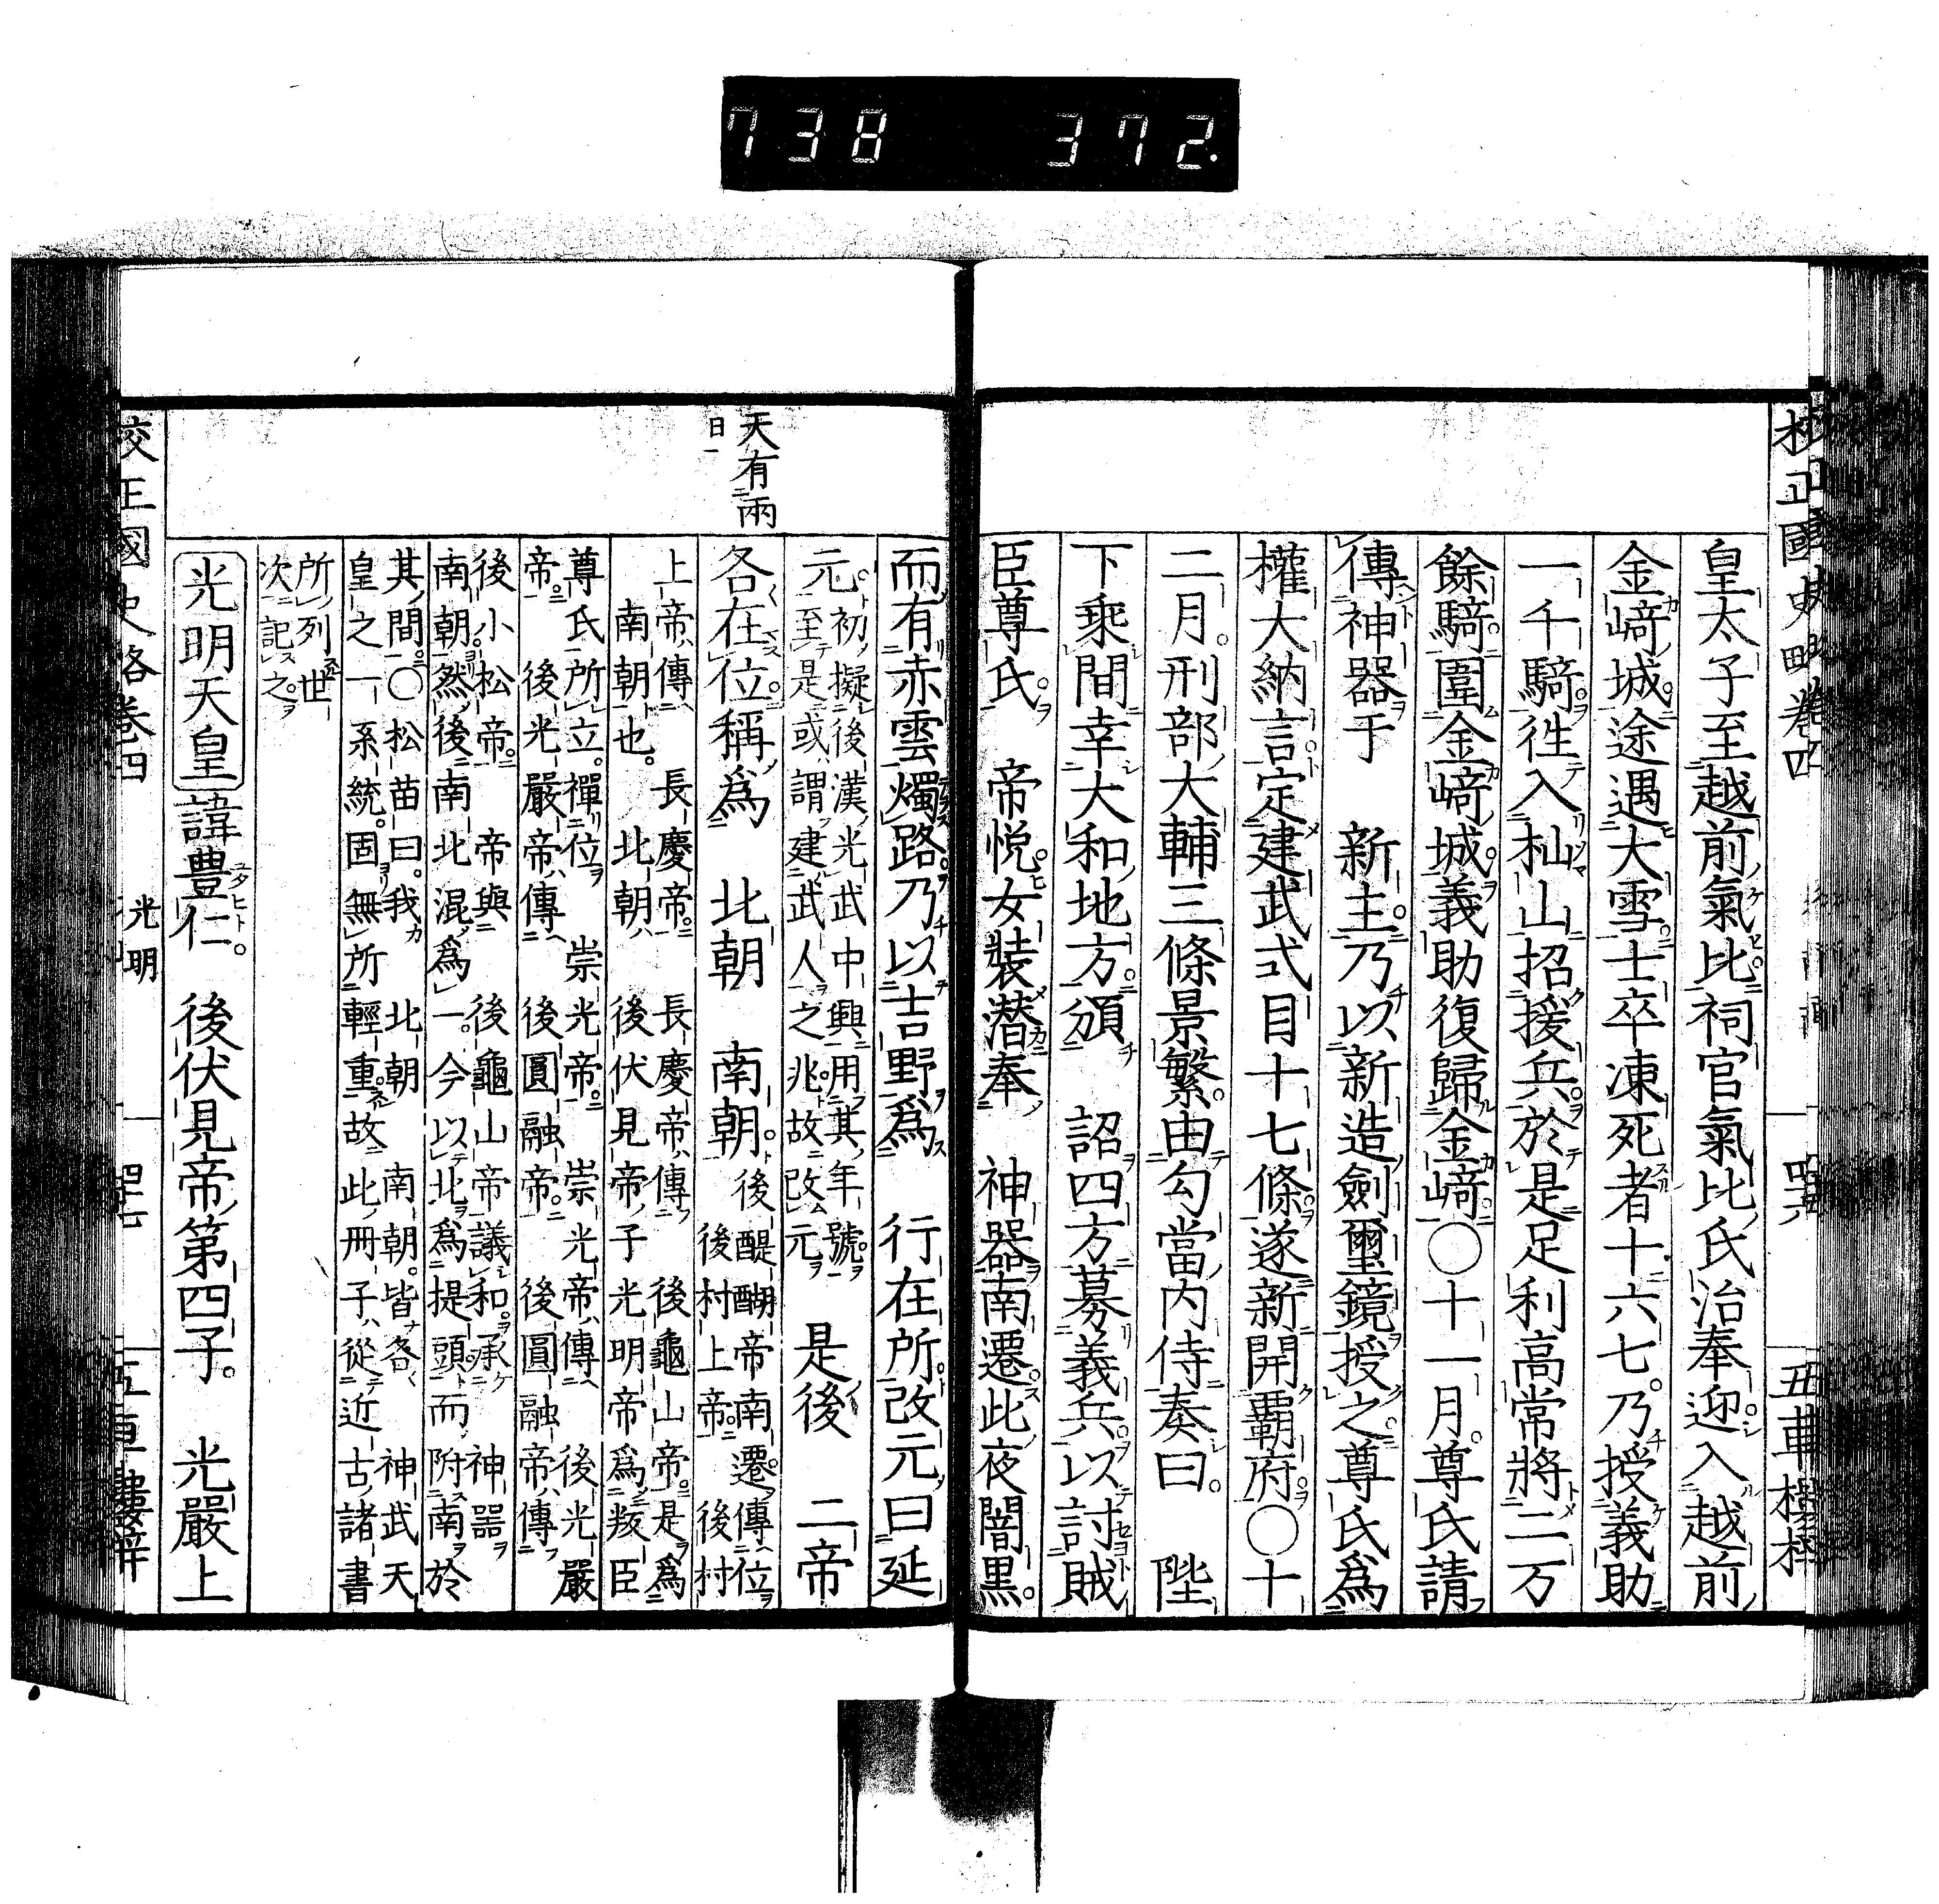 738 372.
校正國史略卷四
皇太子至越前氣比祠官氣比氏治奉迎入越前
金﨑城途遇大雪士卒凍死者十六七乃授義助
一千騎徃入杣山招援兵於是足利高常將二万
餘騎圍金﨑城義助復歸金﨑〇十一月尊氏請
傳神器于 新主乃以新造劍璽鏡授之尊氏爲
權大納言定建武式目十七條遂新開覇府〇十
二月刑部大輔三條景繁由勾當内侍奏曰 陛
下乘間幸大和地方頒 詔四方募義兵以討賊
臣尊氏 帝悦女裝潜奉 神器南遷此夜闇黒
而有赤雲燭路乃以吉野爲 行在所改元曰延
元初擬後漢光武中興用其年號
至是或謂建武人之兆故改元
是後 二帝
天有兩
日
各在位稱爲 北朝 南朝
後醍醐帝南遷傳位
後村上帝 後村
上帝傳 長慶帝 長慶帝傳 後龜山帝是爲
南朝也 北朝 後伏見帝子光明帝爲叛臣
尊氏所立禪位 崇光帝 崇光帝傳 後光嚴
帝 後光嚴帝傳 後圓融帝 後圓融帝傳
後小松帝 帝與 後龜山帝議和承 神器
南朝然後南北混爲一今以北爲提頭而附南於
其間〇松苗曰我 北朝 南朝皆各 神武天
皇之一系統固無所輕重故此册子從近古諸書
所列世
次記之
光明天皇 諱豊仁 後伏見帝第四子 光嚴上
校正國史略卷四
光明